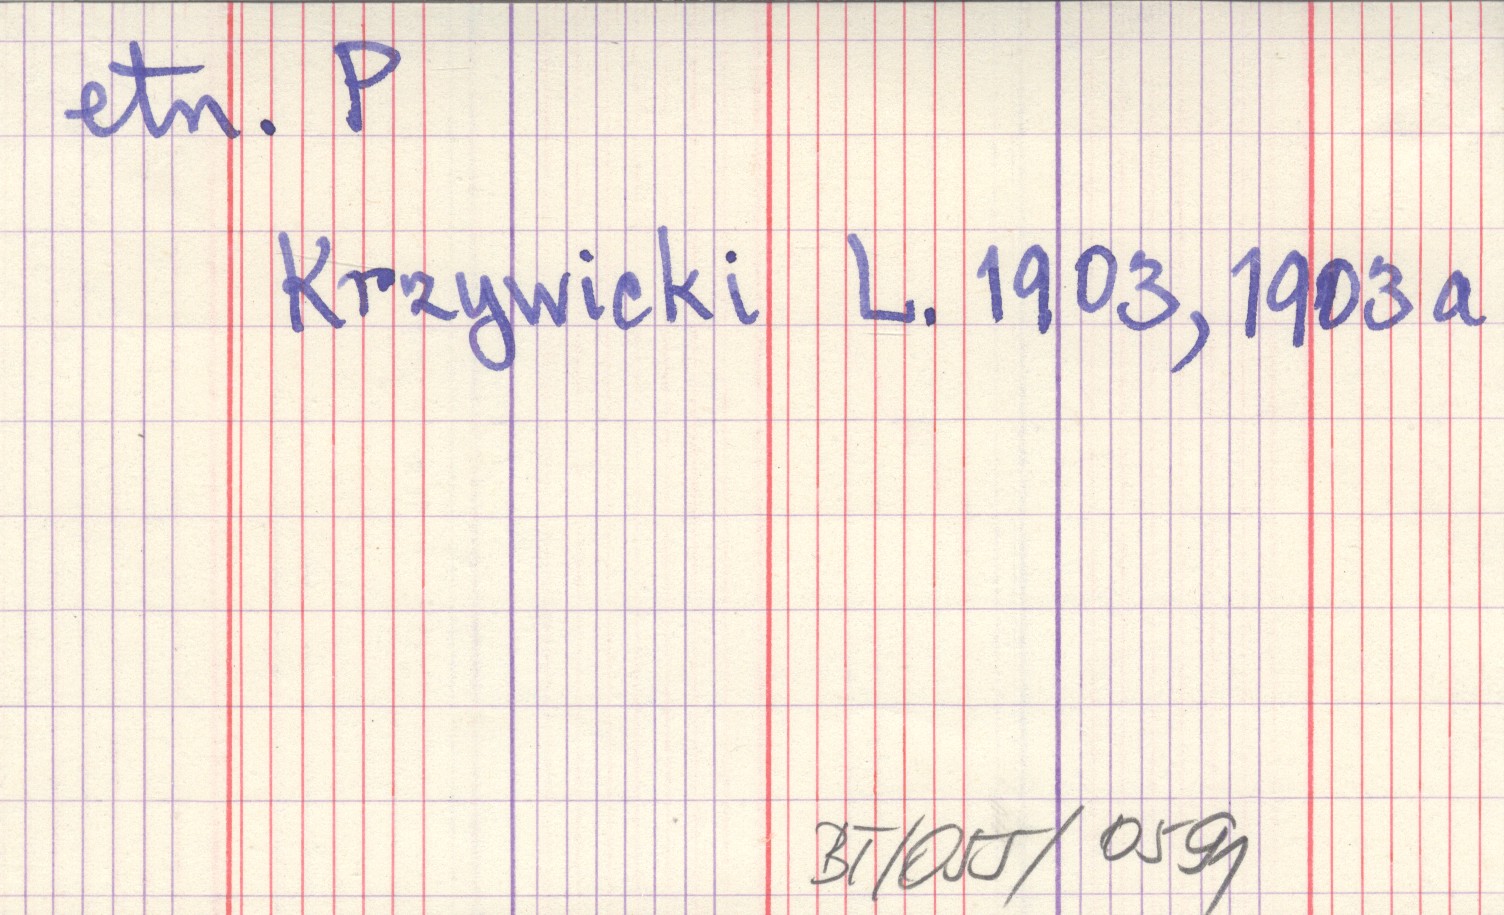 etn. P
Krzywicki L. 1903, 1903a
BT/055/059